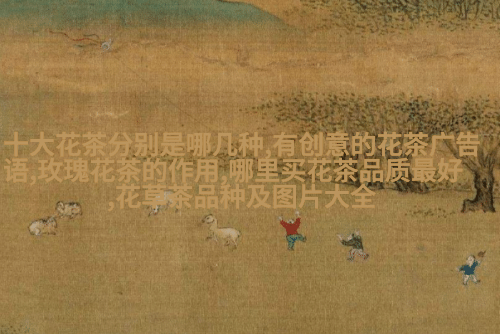 十大花茶分别是哪几种,有创意的花茶广告
语,玫瑰花茶的作用,哪里买花茶品质最好
,花草茶品种及图片大全